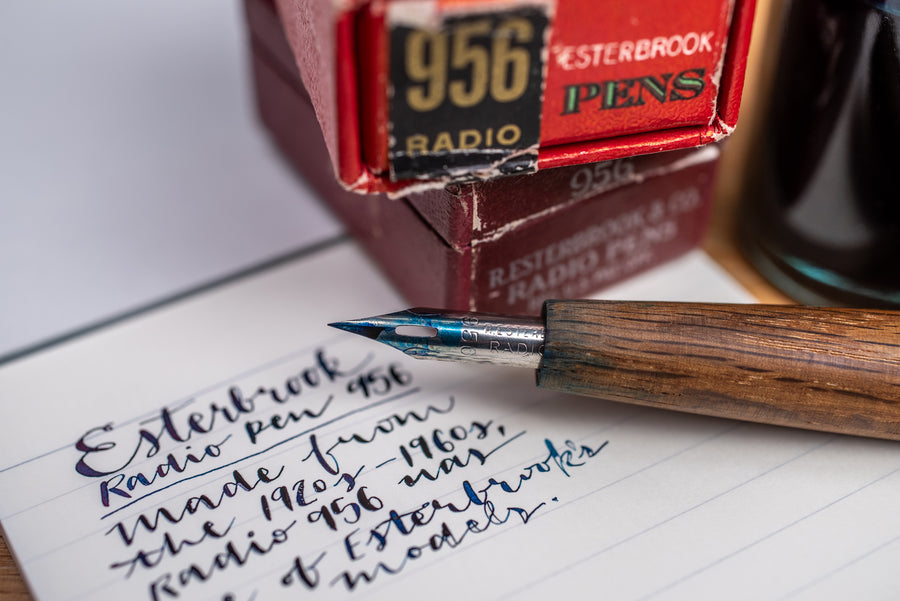 956
RADIO
ESTERBROOK
PENS
956
R.ESTERBROOK & CO.
RADIO PENS
RADIO
Esterbrook
Radio pen 956
made from
the 1920s-1960s,
Radio 956 was
of Esterbrook's
models.